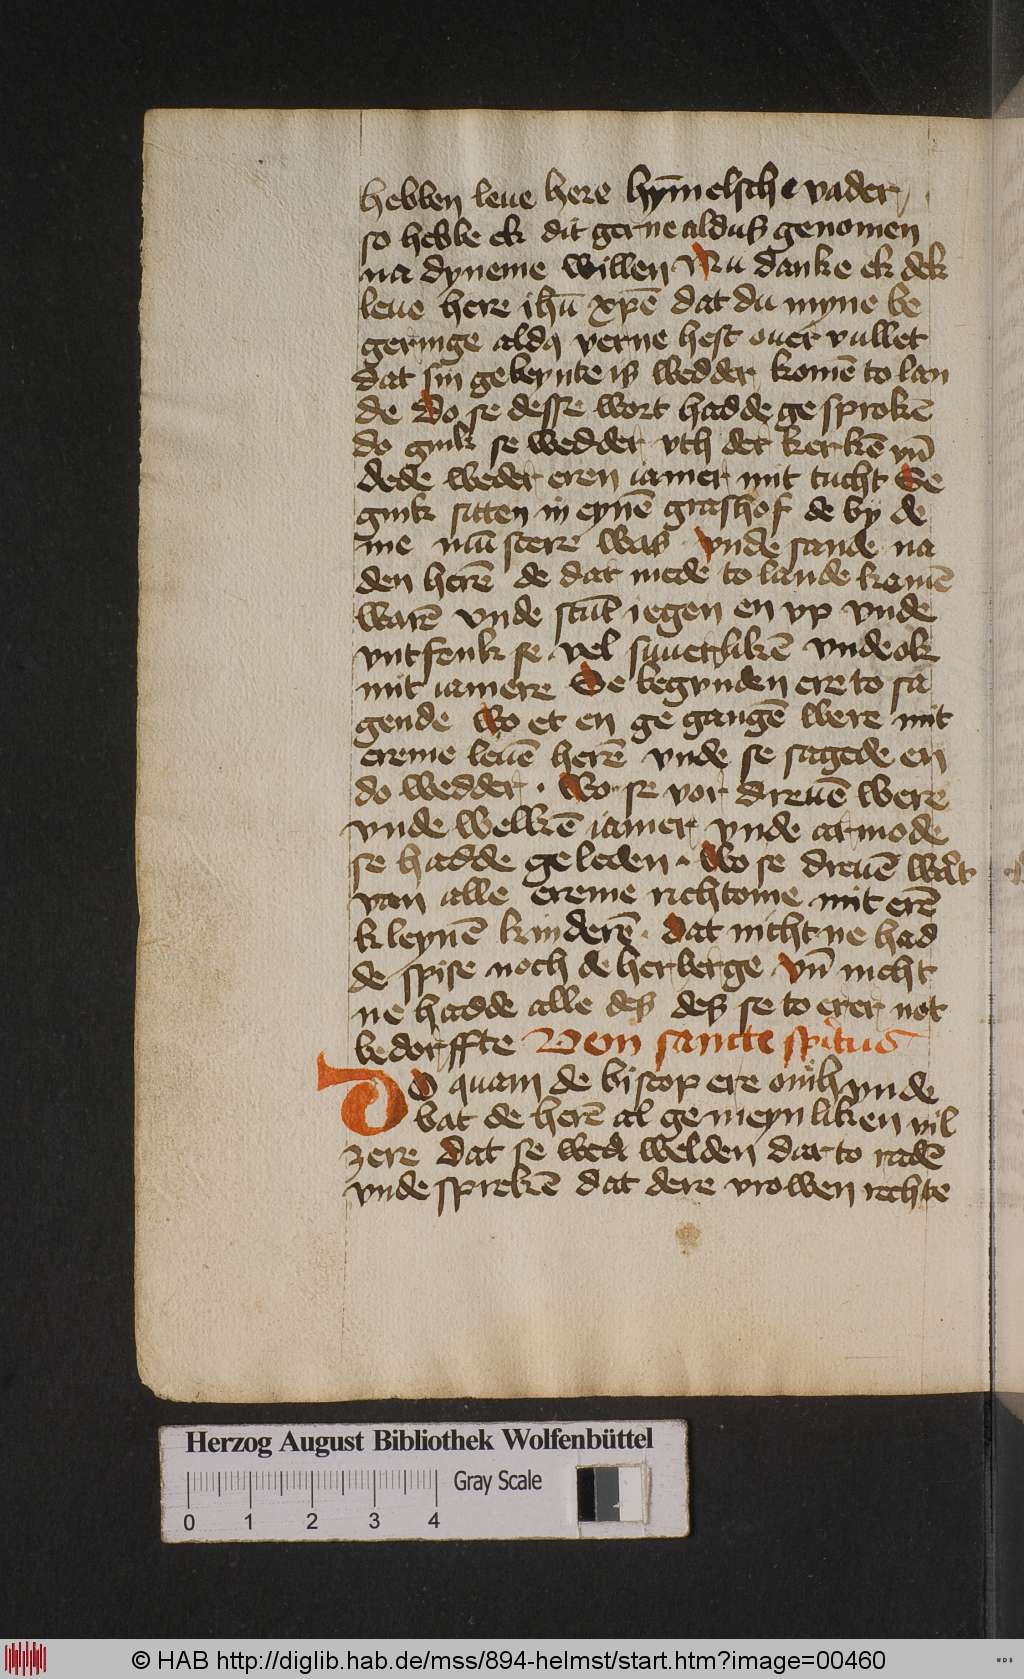 hebben leue here hȳmelsche vader
so hebbe ek dit gerne aldus genomen
na dyneme willen Nu danke ek dek
leue here ihū xp̄e dat du myne be
geringe alda verne hest ouer vullet
dat sin gebeynte is wedder komē to lan
de Do se desse wort hadde ge sprokē
do gink se wedder vth der kerkē vn̄
dede weder eren iamer mit tucht Se
gink sitten in eynē grashof de by de
me mūstere was vnde sande na
den herē de dat mede to lande komē
warē vnde stūt iegen en vp vnde
vntfenk se vel suuerlikē vnde ok
mit iamere Se begynden ere to sa
gende wo et en ge gangē were mit
ereme leuē herē vnde se sagede en
do wedder · wo se vor dreuē were
vnde welkē iamer vnde armode
se hadde geleden · wo se dreuē wart
van alle ereme richtome mit erē
kleynē kinderē · dat nicht ne had
de spise noch de herberge vn̄ nicht
ne hadde alle des des se to erer not
bedorffte Ven sancte spiritus
Do quam de biscop ere omh vnde
bat de herē al ge meynliken vil
zere dat se wed welden dar to radē
vnde sprekē dat dere vrowen rechte
Herzog August Bibliothek Wolfenbüttel
Gray Scale
0 1 2 3 4
© HAB http://diglib.hab.de/mss/894-helmst/start.htm?image=00460